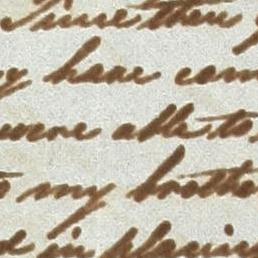 Since then
have com
were able to
to my brothe
in playin